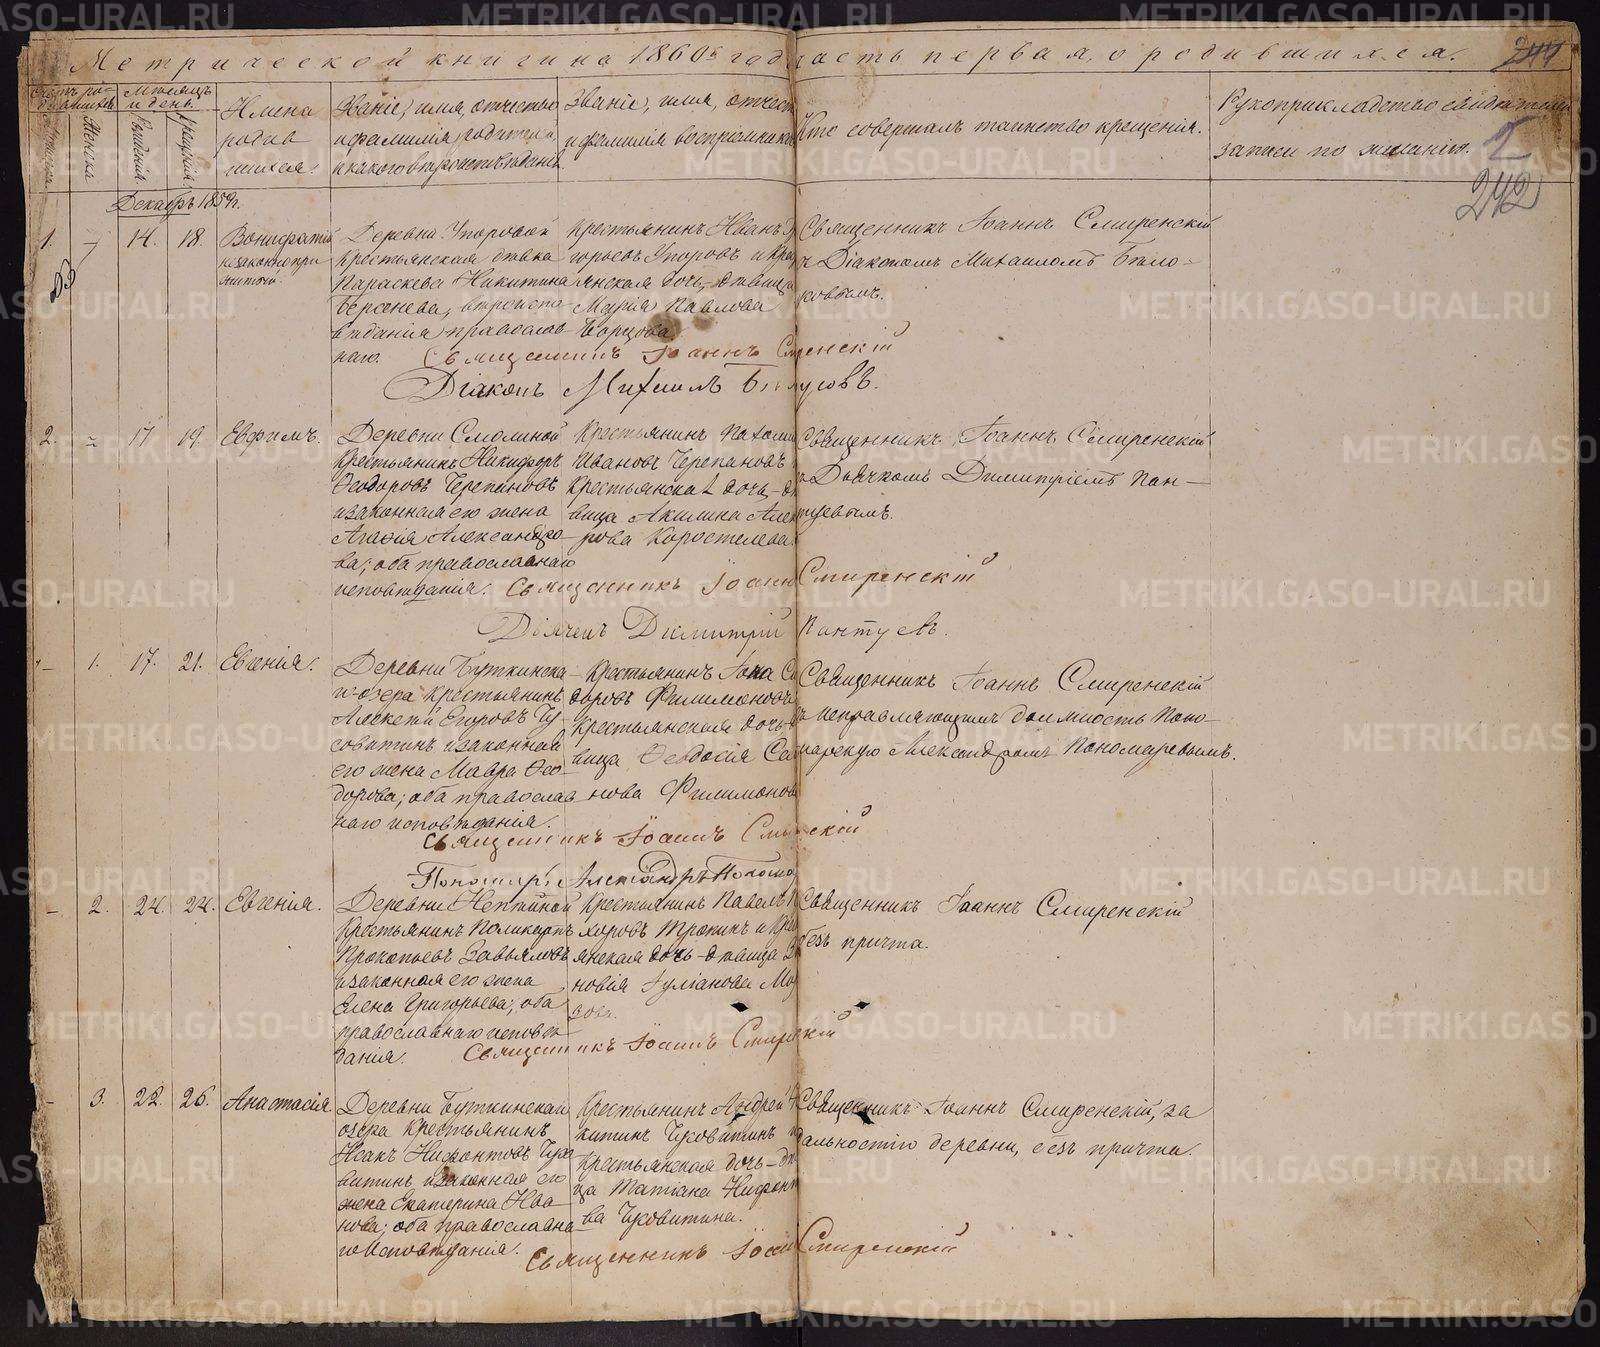 Метрической книги на 1860й годъ часть первая, о родившихся.
244
Счетъ родившихся
Мѣсяцъ и день.
Имена родившихся.
Званіе, имя, отчество и фамилія родителей и какого вѣроисповѣданія.
Званіе, имя, отчество и фамилія воспріемниковъ
Кто совершалъ таинство крещенія.
Рукоприкладство свидѣтелей записи по желанію.
242
Женска
Рожденія.
Крещенія.
Декабрь 1859 г.
1. 14. 18. Вонифатій
незаконнорижитый.
Деревни Упоровой
крестьянская дѣвка
Параскева Никитина
Берсенева, вѣроисповѣданія православнаго.
Крестьянинъ Иванъ
горьевъ Упоровъ и крестьянская дочь-дѣвица
Марія Павлова
Борцова
Священникъ Іоаннъ Смиренскій
съ Діакономъ Михаиломъ Бѣло-
Священникъ Іоаннъ Смиренскій
Діаконъ Михаилъ
2. 17 19. Евфимъ.
Деревни Смолиной
крестьянинъ Никифоръ
Ѳеодоровъ Черепановъ
и законная его жена
Агафія Александро-
ва; оба православнаго
исповѣданія.
Крестьянинъ Пахомъ
Ивановъ Черепановъ
крестьянская дочь-дѣ
вица Акилина Алек
рова Коростелева.
Священникъ Іоаннъ Смиренскій
Дьячкомъ Димитріемъ Пан-
туевымъ.
Священникъ Іоаннъ Смиренскій
Дьячекъ Димитрій Пантуевъ.
1. 17. 21. Евгенія.
Деревни Буткинска-
го озера крестьянинъ
Алексѣй Егоровъ Чу-
совитинъ и законная
его жена Мавра Ѳео-
дорова; оба православ
наго исповѣданія.
Крестьянинъ Іона Си
доровъ Филимоновъ
крестьянская дочь-
вица Ѳеодосія Се
нова Филимонов
Священникъ Іоаннъ Смиренскій
исправляющимъ должность поно-
марскую Александромъ Пономаревымъ.
Священникъ Іоаннъ Смиренскій
Пономарь Александръ Поном
2. 24. 24. Евгенія.
Деревни Нептяиной
крестьянинъ Поликарпъ
Прокопьевъ Завьяловъ
и законная его жена
Елена Григорьева; оба
православнаго исповѣ-
данія.
Крестьянинъ Павелъ П
хоровъ Тропинъ и кре
янская дочь-дѣвица З
новія Іуліанова Мо
зова.
Священникъ Іоаннъ Смиренскій
безъ причта.
Священникъ Іоаннъ Смиренскій
3. 22. 26. Анастасія
Деревни Буткинскаго
озера крестьянинъ
Исакъ Нифонтовъ Чусо
витинъ и законная его
жена Екатерина Ива
нова; оба православна
го исповѣданія.
Крестьянинъ Андрей Н
китинъ Чусовитинъ и
крестьянская дочь-дѣ
ца Татіана Нифонт
ва Чусовитина.
Священникъ Іоаннъ Смиренскій, за
дальностію деревни, безъ причта.
Священникъ Іоаннъ Смиренскій
METRIKI.GASO-URAL.RU